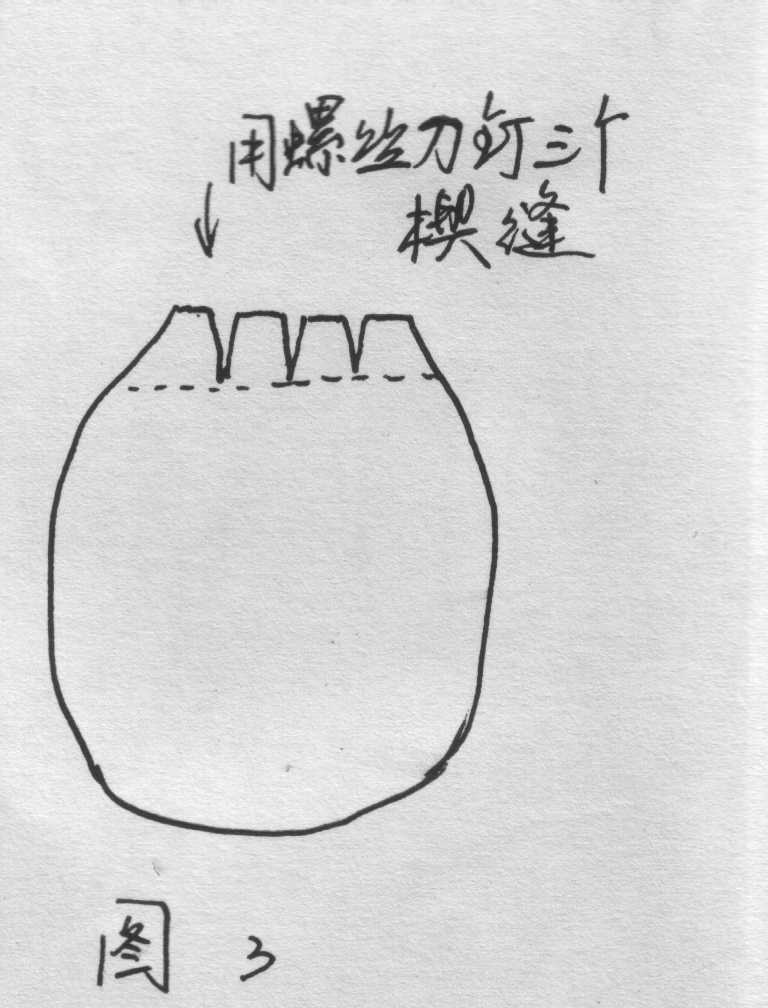 用螺丝刀钉三个
楔缝
图 3